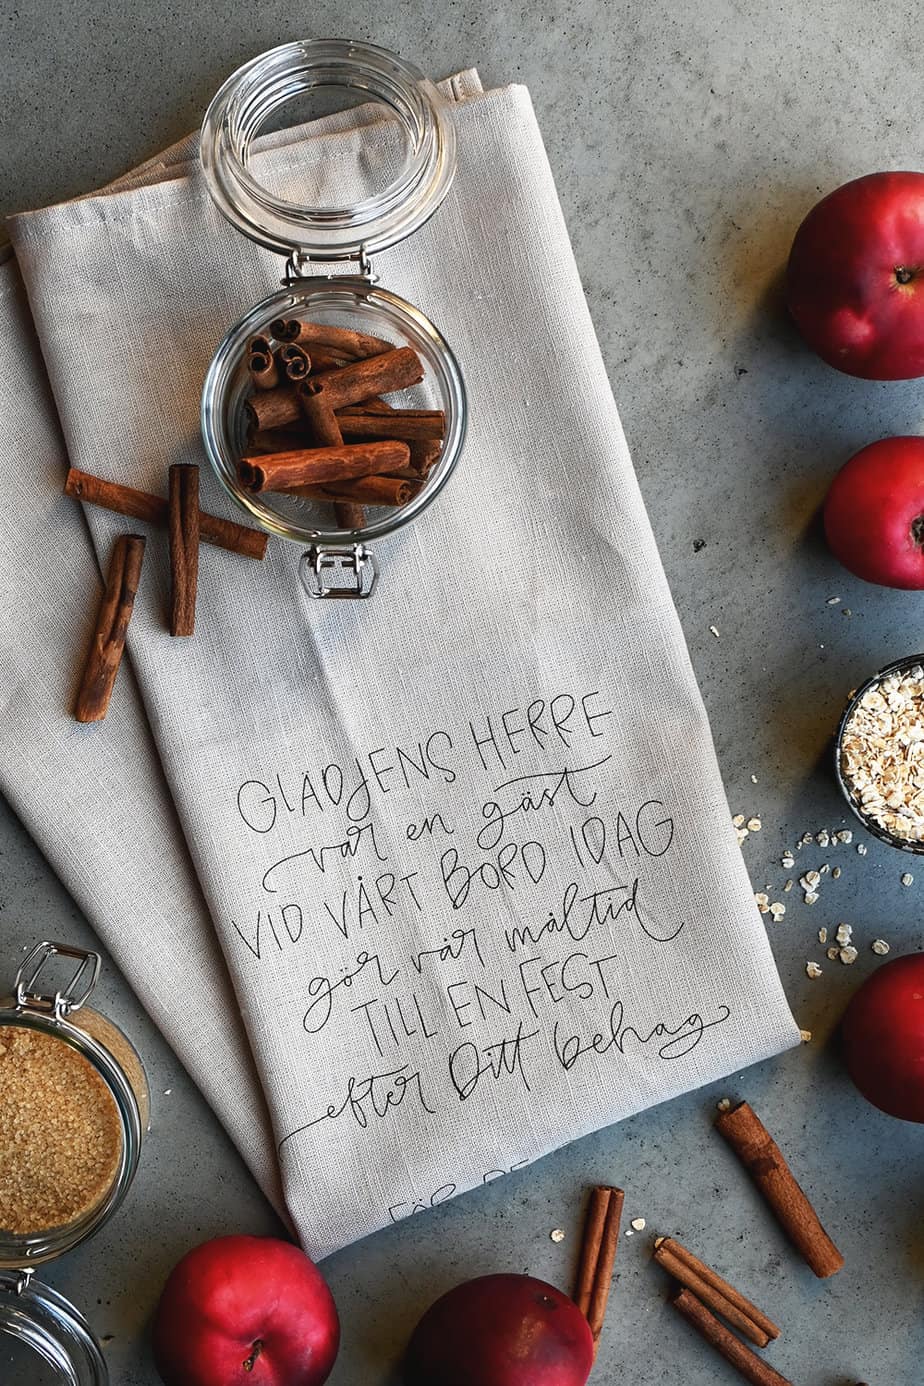 GLÄDJENS HERRE
var en gäst
VID VÅRT BORD IDAG
gör vår måltid
TILL EN FEST
efter Ditt behag
FÖR DE